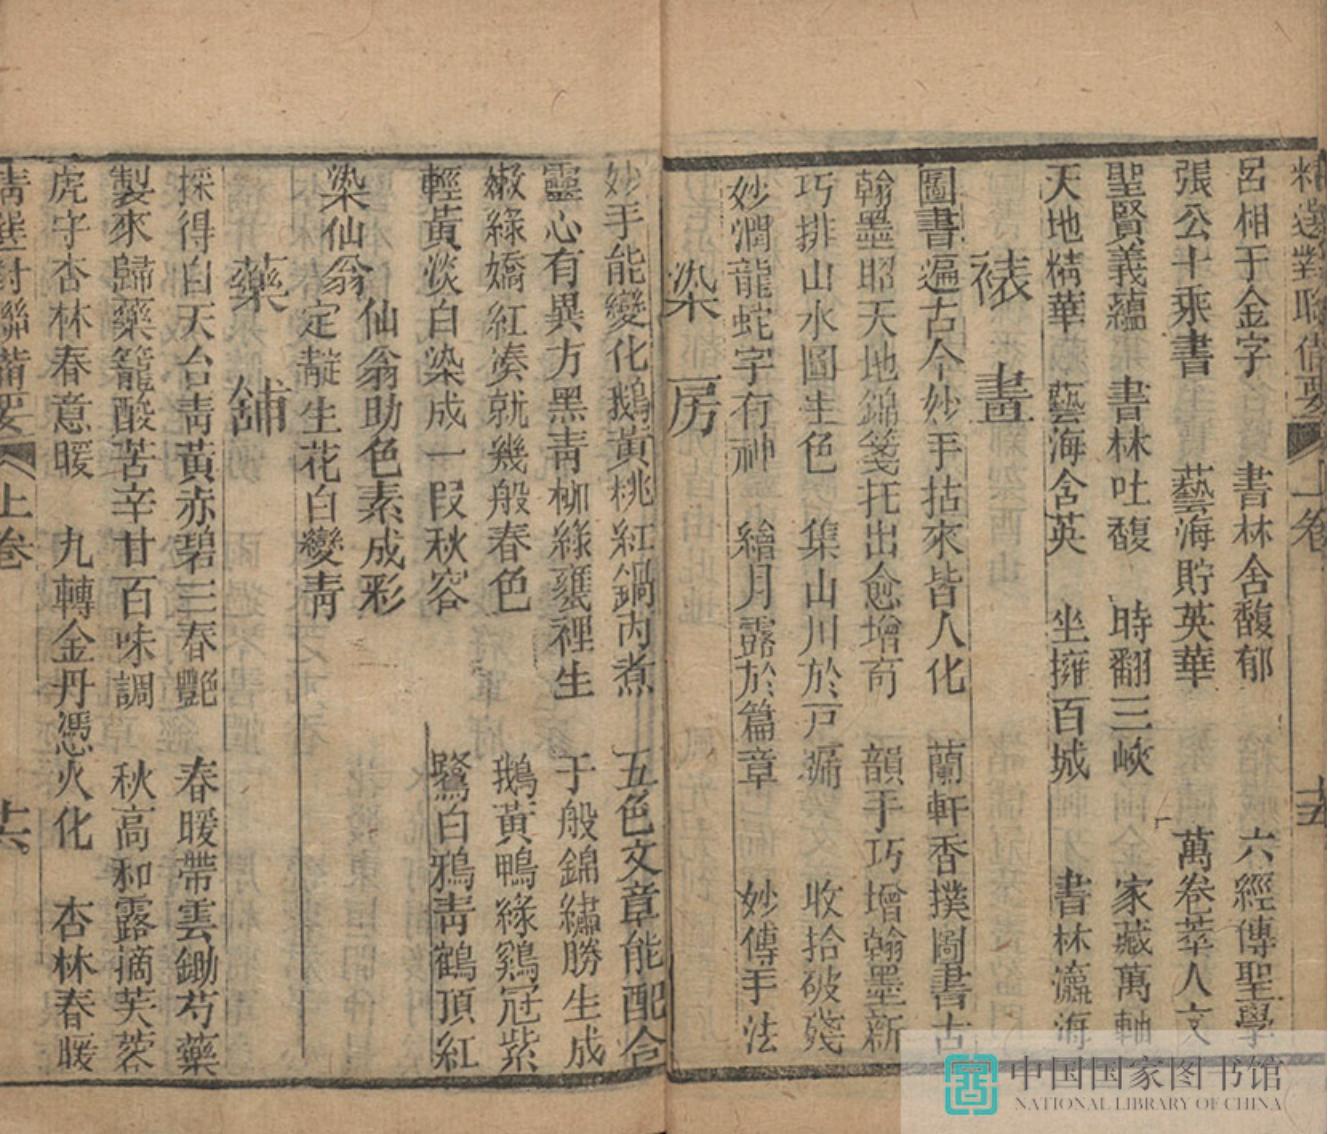 精選對聯備要 上卷 十五
呂相于金字 書林含馥郁 六經傳聖學
張公十乘書 藝海貯英華 萬卷萃人文
聖賢義蘊 書林吐馥 時翻三峽 家藏萬軸
天地精華 藝海含英 坐擁百城 書林瀛海
裱畫
圖書遍古今妙手拈來皆人化 蘭軒香撲圖書古
翰墨昭天地錦箋托出愈增奇 韻手巧增翰墨新
巧排山水圖生色 集山川於戸牖 收拾破殘
妙潤龍蛇字有神 繪月露於篇章 妙傳手法
染房
妙手能變化鵝黃桃紅鍋內煮 五色文章能配合
靈心有異方黑青柳綠甕裡生 于般錦繡勝生成
嫩綠嬌紅湊就幾般春色 鵝黃鴨綠鷄冠紫
輕黃淡白染成一叚秋容 鷺白鴉青鶴頂紅
染仙翁 仙翁助色素成彩
定靛生花白變青
藥舖
採得自天台青黃赤碧三春艷 春暖帶雲鋤芍藥
製來歸藥籠酸苦辛甘百味調 秋高和露摘芙蓉
虎守杏林春意暖 九轉金丹憑火化 杏林春暖
精選對聯備要 上卷 十六
中国国家图书馆
NATIONAL LIBRARY OF CHINA